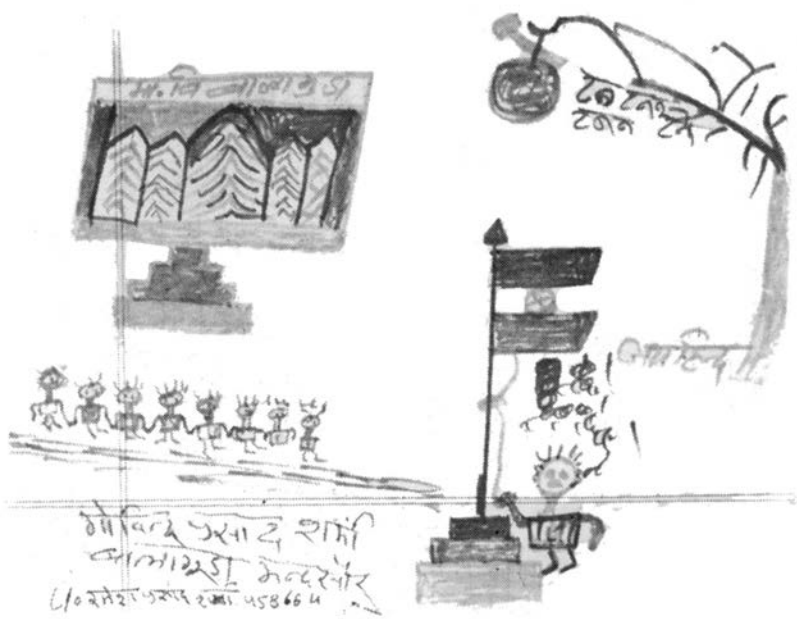 मा. वि बालागुडा
टन टनन
टनन टन
गोविन्द प्रसाद शर्मा
बालागुडा मन्दसौर
C/o रमेश प्रसाद शर्मा 458664